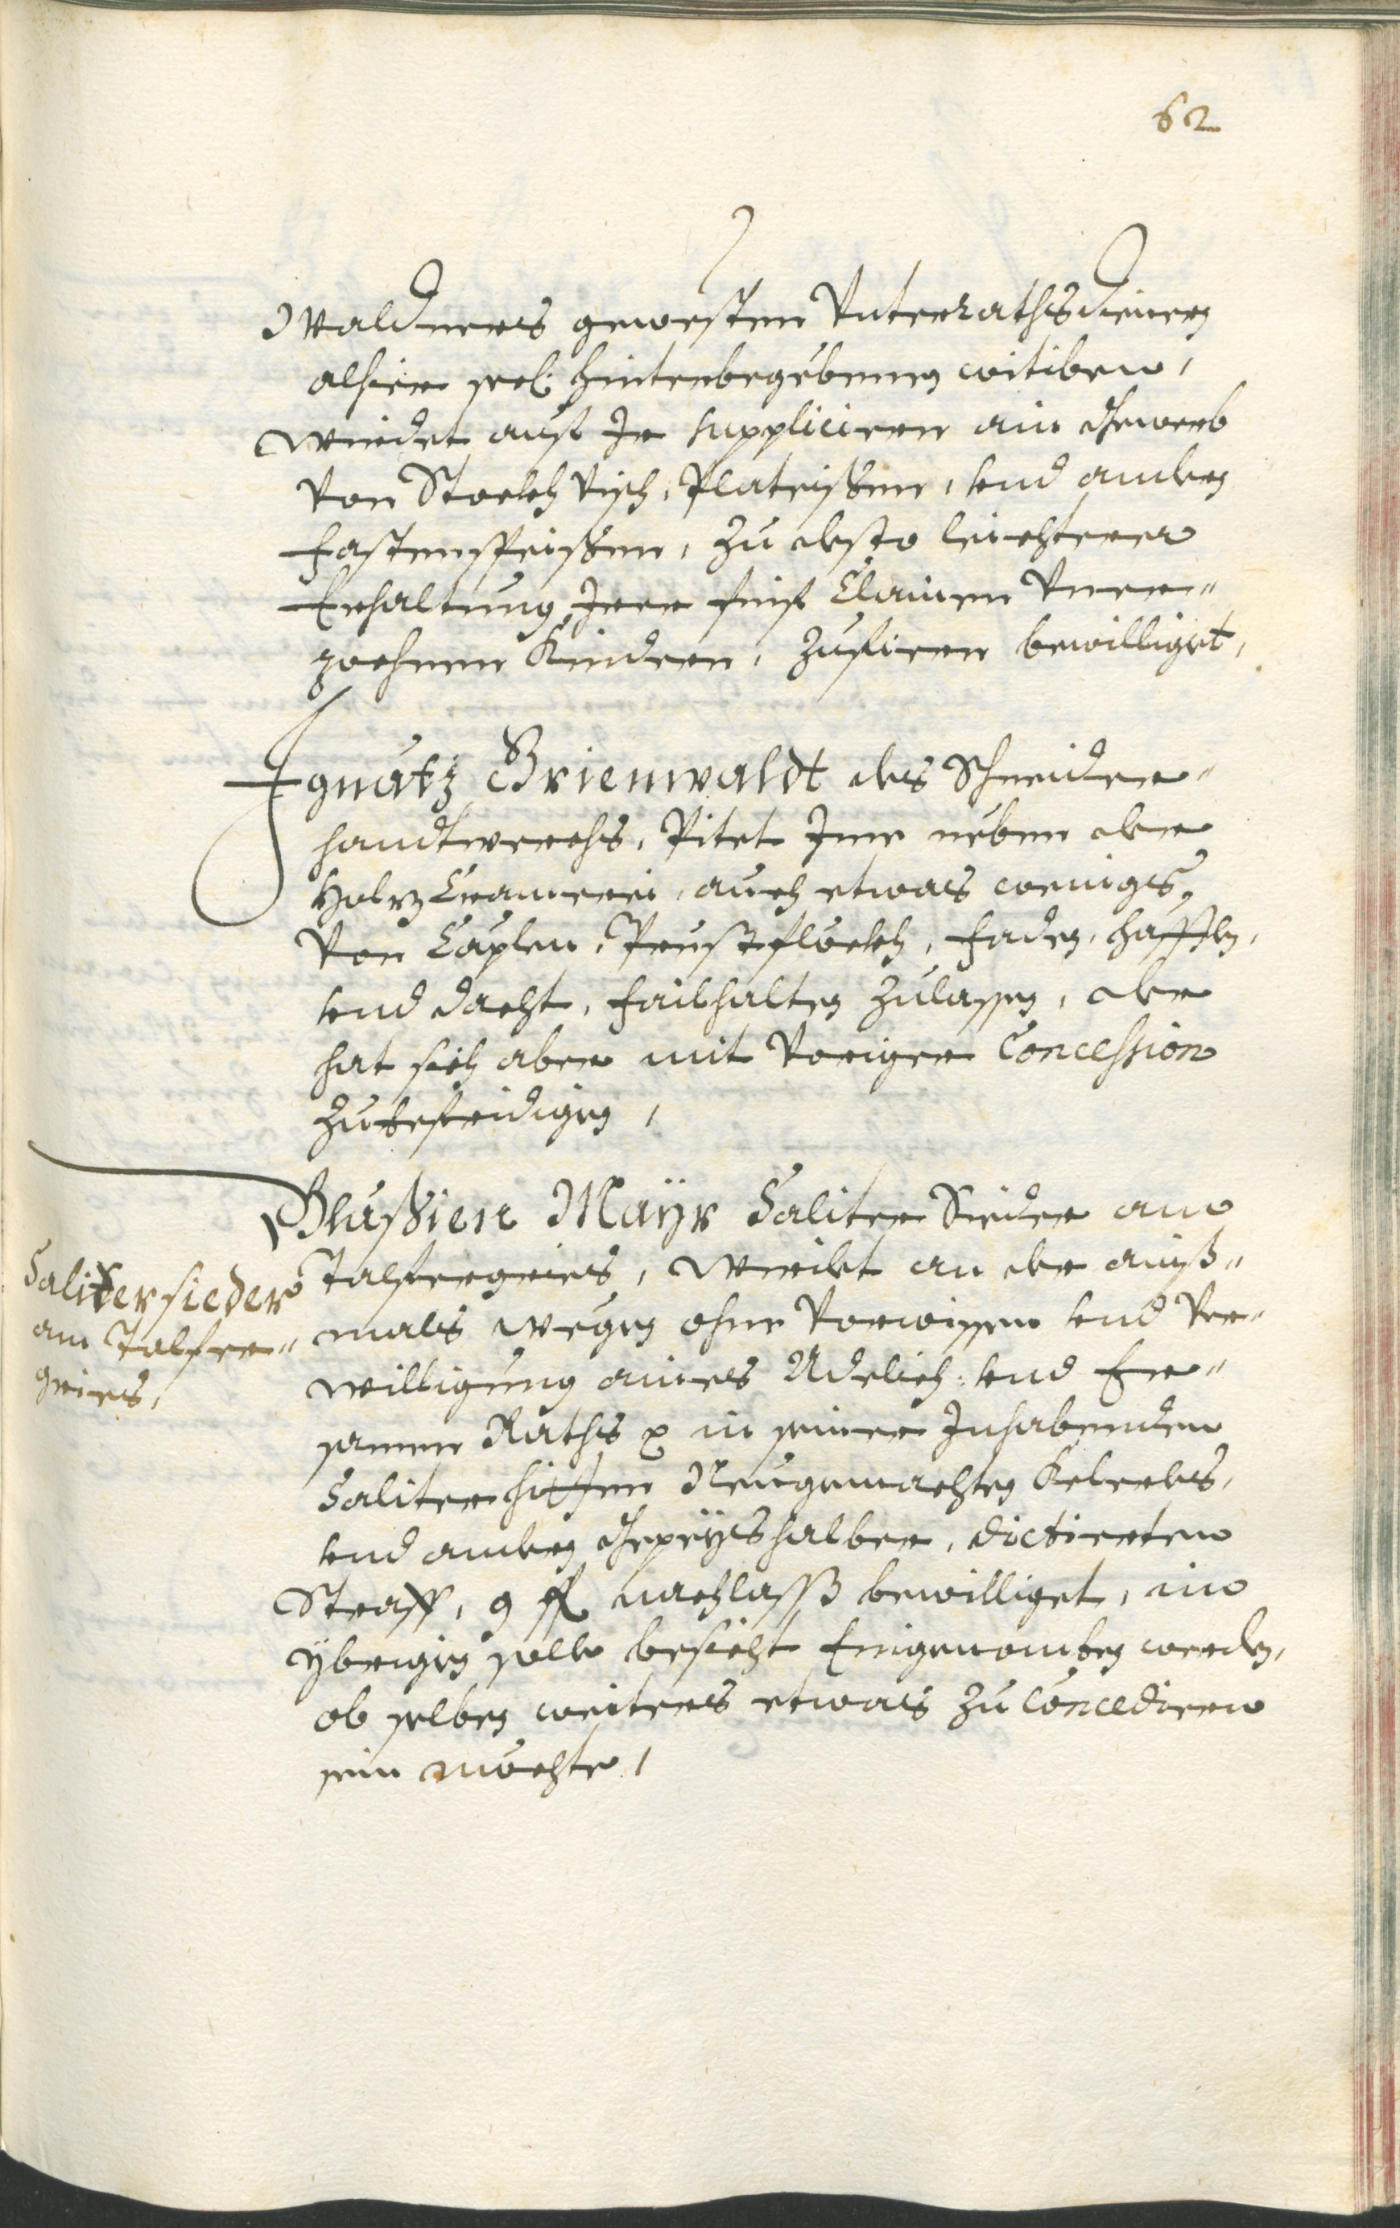 62
Waldners gewesten Unterrathsdieners
alhier sel: hinterbegebnen witiben,
wirdet auf Ir suppliciern ain Gewerb
von Stockh Visch, Plateißlen, und andern
Fastenspeißen, zu desto leichterer
Erhaltung Irer finf Clainen Uner-
zochnen Kindern, zufiern bewilliget,
Ignatz Grienwaldt des Schneider-
handtwerchs, Pitet Ime neben der
Holz Cramerei, auch etwas weniges
von Caplen, Preußflöckh, Faden, Hafftln,
und dacht, failhalten zulassen, der
hat sich aber mit voriger Concession
zubefridigen,
Saliter sieder
am Talfer-
gries,
Blasien Mayr Saliter Sieder am
Talfergries, wirdet an der ainß-
mals wegen ohne vorwissen und Ver-
willigung aines Adelich: und Er-
samen Raths in seiner Inhabenden
Saliter hitten Neugemachten Kelers,
und andern Gepeys halber, dictierten
Straff, 9 fl nachlaß bewilliget, im
ybrigen solle besicht Eingenomben werden,
ob selben weiters etwas zu Concediern
sein mechte,